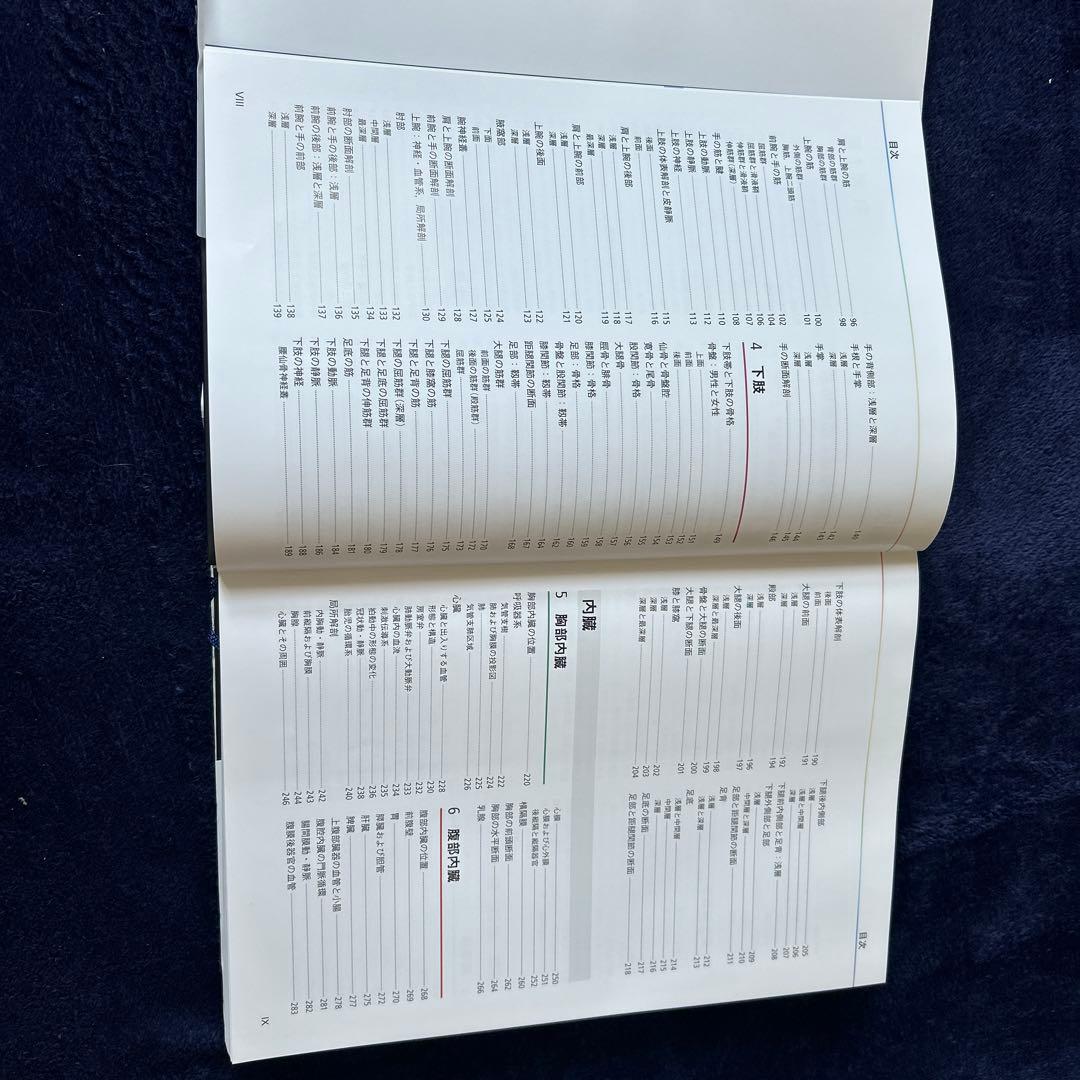 目次
肩と上腕の筋 96
背部の筋群
胸部の筋群 98
上腕の筋 100
外側の筋群 101
胸筋、上腕二頭筋
前腕と手の筋 102
屈筋群 104
屈筋群と滑液鞘 106
伸筋群と滑液鞘 107
伸筋群(深層) 108
手の筋と腱 110
上肢の動脈 112
上肢の静脈 113
上肢の神経
上肢の体表解剖と皮静脈 115
後面 116
肩と上腕の後部 117
浅層 118
深層 119
最深層
肩と上腕の前部 120
浅層 121
深層
上腕の後面 122
浅層 123
深層
腋窩部 124
下面 125
前面 127
腕神経叢 128
肩と上腕の断面解剖 129
前腕と手の断面解剖 130
上腕:神経・血管系,局所解剖
肘部 132
浅層 133
中間層 134
最深層 135
肘部の断面解剖 136
前腕と手の後部:浅層 137
前腕の後部:浅層と深層
前腕と手の前部 138
浅層 139
深層
手の背側部:浅層と深層 140
手根と手掌
浅層 142
深層 143
手掌
浅層 144
深層 145
手の断面解剖 146
4 下肢
下肢帯と下肢の骨格 149
骨盤:男性と女性
上面 151
前面 152
後面 153
仙骨と骨盤腔 154
寛骨と尾骨 155
股関節:骨格 156
大腿骨 157
脛骨と腓骨 158
膝関節:骨格 159
足部:骨格 160
骨盤と股関節:靱帯 162
膝関節:靱帯 164
距腿関節の断面 167
足部:靱帯 168
大腿の筋群
前面の筋群 170
後面の筋群(殿筋群) 172
屈筋群 173
下腿の屈筋群 175
下腿と膝窩の筋 176
下腿と足背の筋 177
下腿の屈筋群(深層) 178
下腿と足底の屈筋群 179
下腿と足背の伸筋群 180
足底の筋 181
下肢の動脈 184
下肢の静脈 186
下肢の神経 188
腰仙骨神経叢 189
VIII
目次
下肢の体表解剖
後面 190
前面 191
大腿の前面
浅層 192
深層 194
殿部
浅層 196
深層 197
大腿の後面
浅層 198
深層と最深層 199
骨盤と大腿の断面 200
大腿と下腿の断面 201
膝と膝窩
浅層 202
深層 203
深層と最深層 204
下腿後内側部
浅層 205
浅層と中間層 206
深層 207
下腿前内側部と足背:浅層 208
下腿外側部と足部
浅層 209
中間層と深層 210
足部と距腿関節の断面 211
足背
浅層 212
浅層と深層 213
足底
浅層と中間層 214
中間層 215
深層 216
足底の断面 217
足部と距腿関節の断面 218
内臓
5 胸部内臓
胸部内臓の位置 220
呼吸器系
気管支樹 222
肺および胸膜の投影図 224
肺 225
気管支肺区域 226
心臓
心臓と出入りする血管 228
形態と構造 230
房室弁 232
肺動脈弁および大動脈弁 233
心臓内の血流 234
刺激伝導系 235
拍動中の形態の変化 236
冠状動・静脈 238
胎児の循環系 240
局所解剖
内胸動・静脈 242
前縦隔および胸膜 243
胸腺 244
心臓とその周囲 246
心膜 250
心臓および心外膜 251
後縦隔と縦隔器官 252
横隔膜 260
胸部の前頭断面 262
胸部の水平断面 264
乳腺 266
6 腹部内臓
腹部内臓の位置 268
前腹壁 269
胃 270
膵臓および胆管 272
肝臓 275
脾臓 277
上腹部臓器の血管と小腸 278
腹腔内臓の門脈循環 281
腸間膜動・静脈 282
腹膜後器官の血管 283
IX